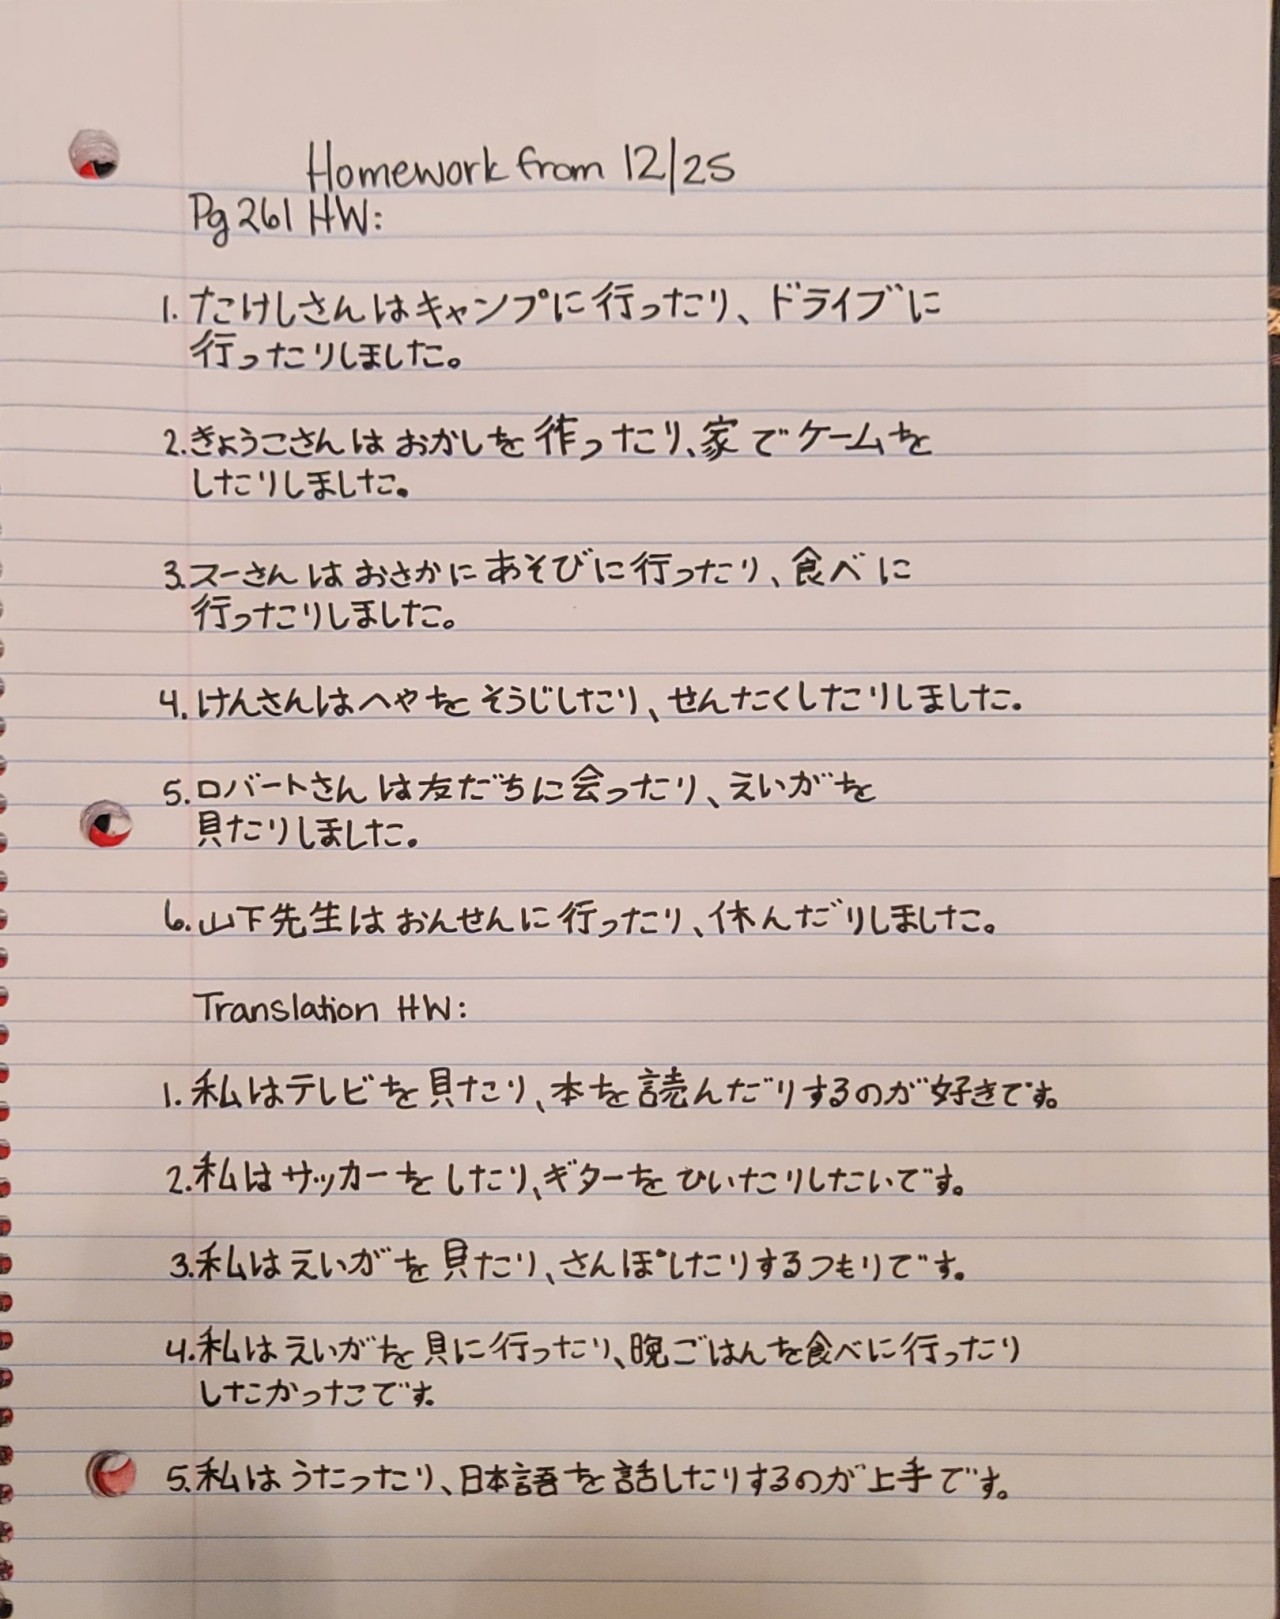 Homework from 12/25
Pg 261 HW:
1. たけしさんはキャンプに行ったり、ドライブに
行ったりしました。
2. きょうこさんはおかしを作ったり、家でケームを
したりしました。
3. スーさんはおさかにあそびに行ったり、食べに
行ったりしました。
4. けんさんはへやをそうじしたり、せんたくしたりしました。
5. ロバートさんは友だちに会ったり、えいがを
貝たりしました。
6. 山下先生はおんせんに行ったり、休んだりしました。
Translation HW:
1. 私はテレビを貝たり、本を読んだりするのが好きです。
2. 私はサッカーをしたり、ギターをひいたりしたいです。
3. 私はえいがを貝たり、さんぽしたりするつもりです。
4. 私はえいがを貝に行ったり、晩ごはんを食べに行ったり
したかったです。
5. 私はうたったり、日本語を話したりするのが上手です。